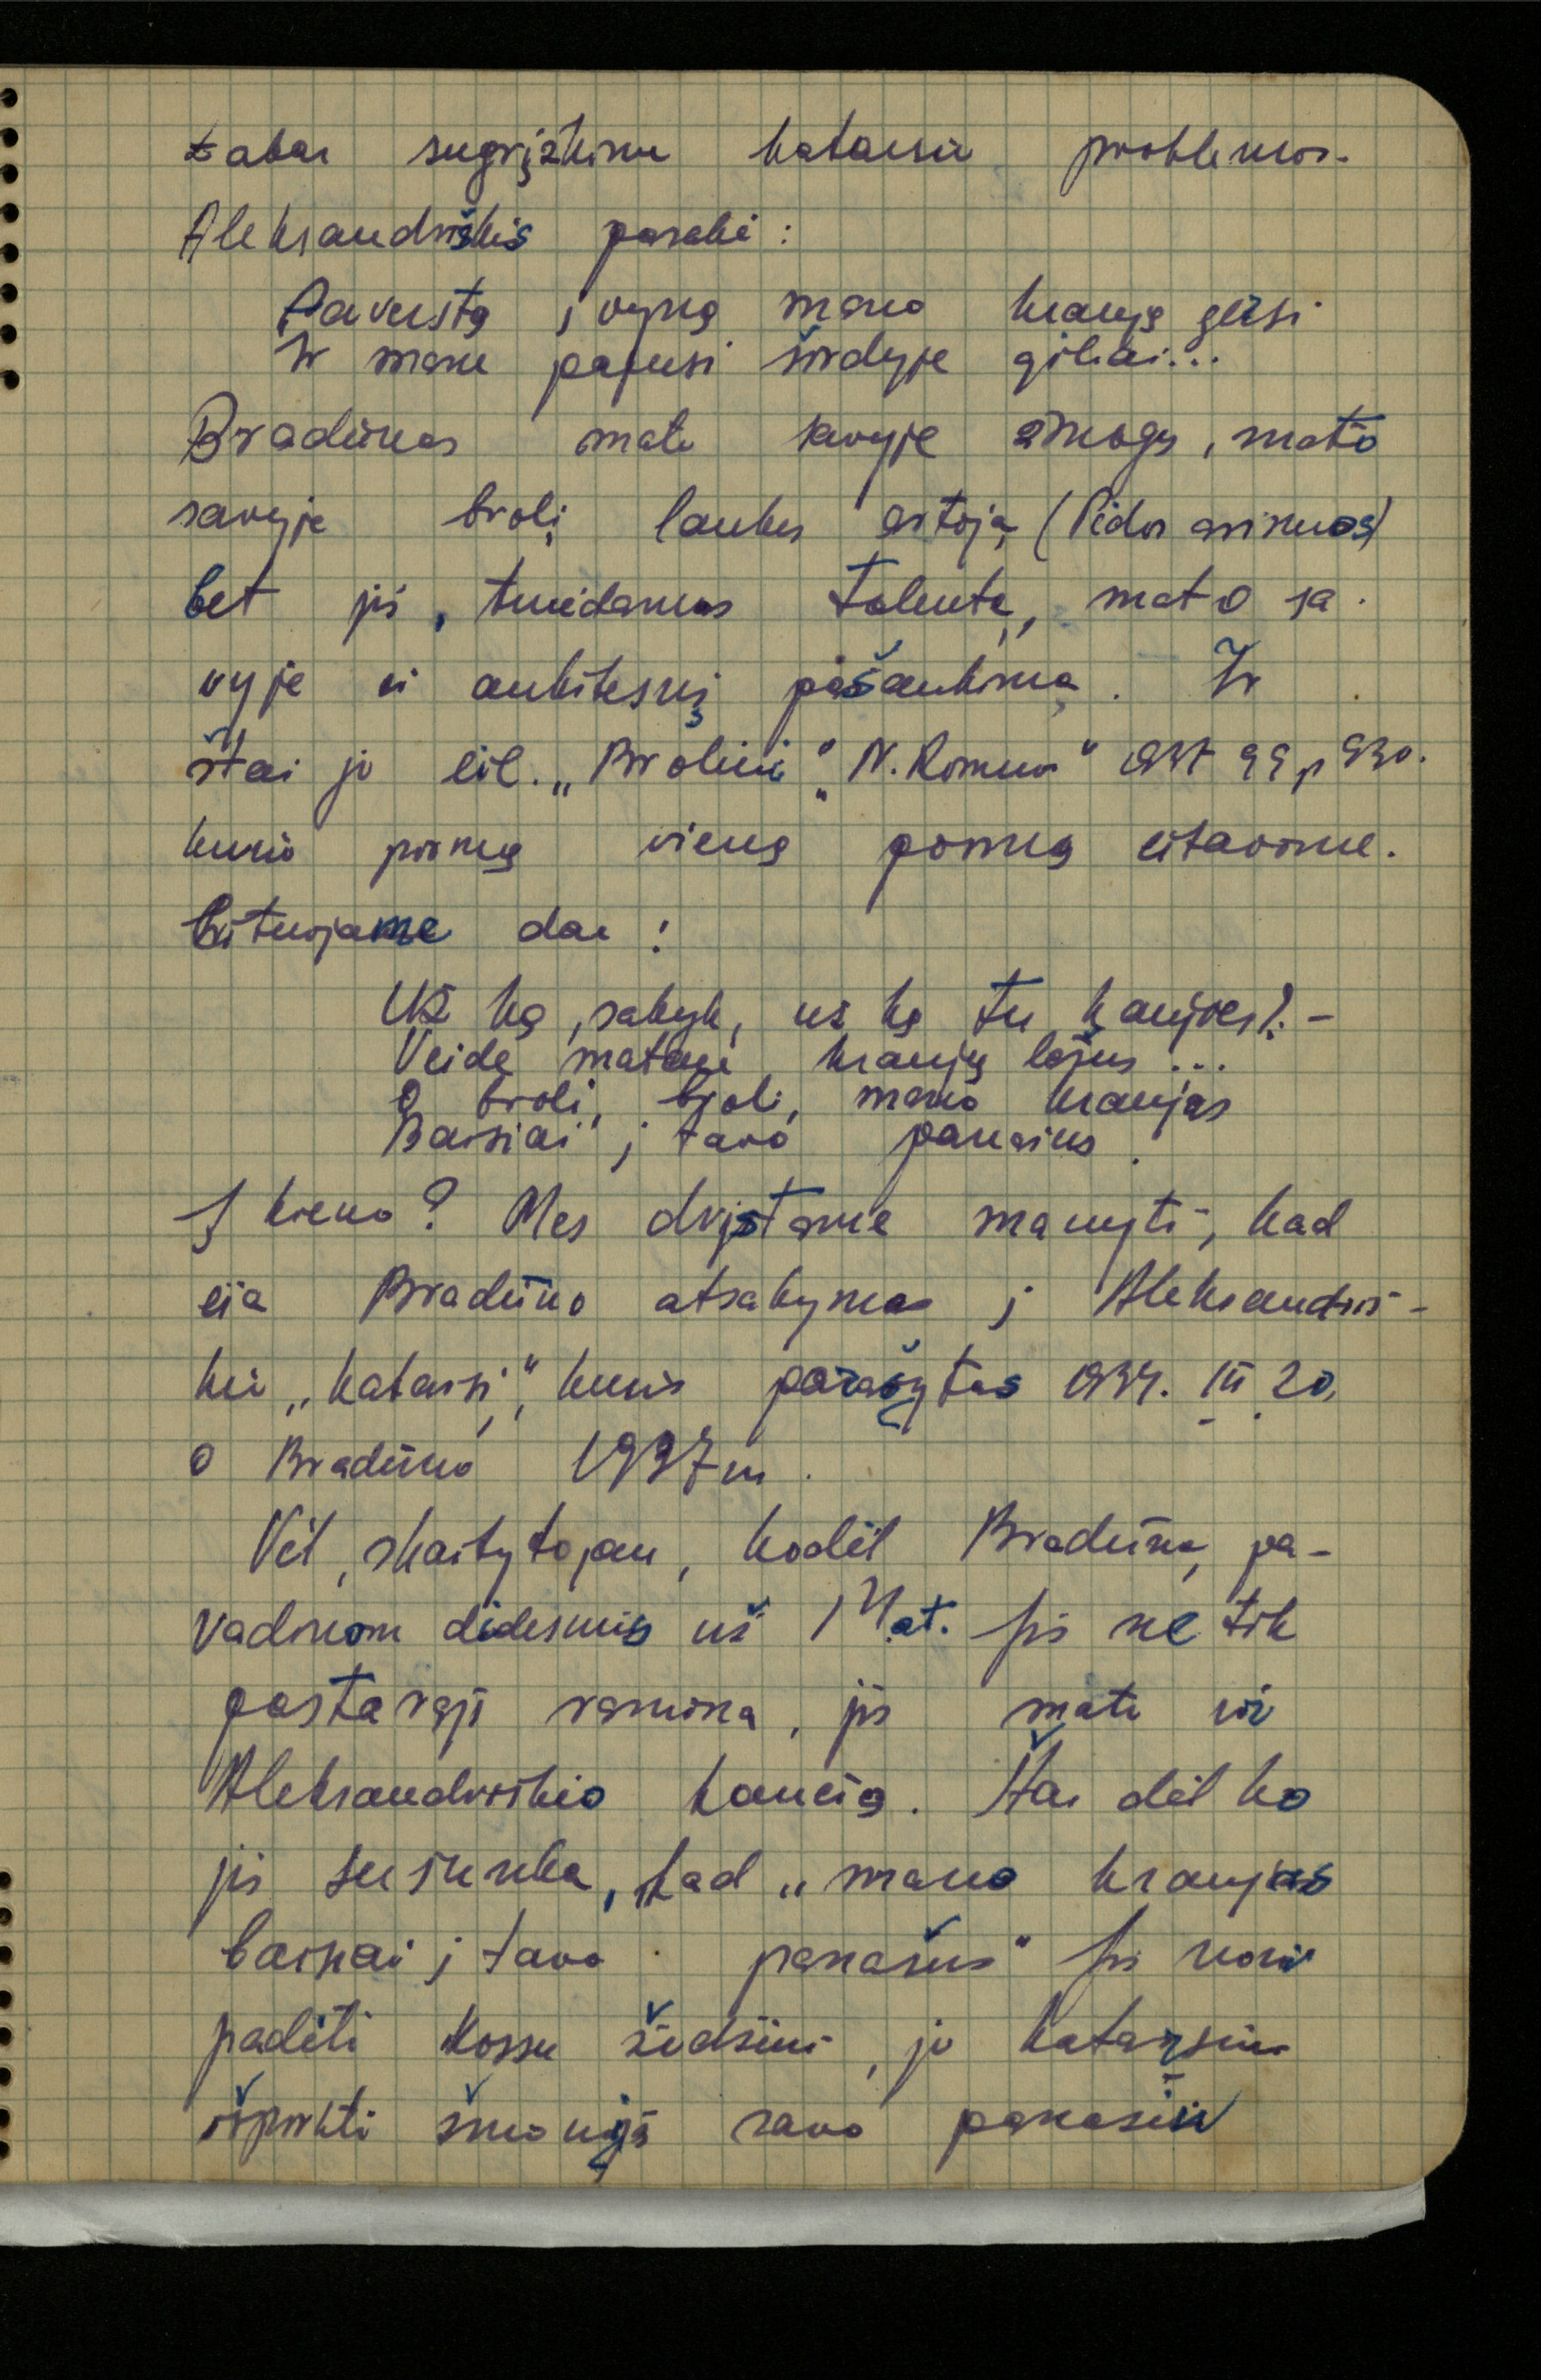 dabar sugrįžkime katarsio problemos.
Aleksandriškis parašė:
Paverstą į vyną mano kraują gersi
Ir mane pajusi širdyje giliai...
Bradūnas mato savyje žmogų, mato
savyje brolį laukų artoją (Pėdos arimuos)
bet jis, turėdamas talentą, mato sa-
vyje ir aukštesnį pašaukimą. Ir
štai jo eil. „Broliui" „N. Romuva" 1937 p 930.
kurio pirmą vieną posmą citavome.
Cituojame dar:
Už ką, sakyk, už ką tu kaujies? -
Veide matau kraujų lašus...
O broli, broli, mano kraujas
Baisiai į tavo panašus.
Į kieno? Mes drįstame manyti, kad
čia Bradūno atsakymas į Aleksandriš-
kio „katarsį", kuris parašytas 1934. III 20,
o Bradūno 1937 m.
Vėl, skaitytojau, kodėl Bradūną pa-
vadinom didesniu už Mat. Jis ne tik
pastarąjį ramina, jis mato ir
Aleksandriškio kančią. Štai dėl ko
jis sušunka, kad „mano kraujas
baisiai į tavo panašus" Jis nori
padėti Kossu žodžiui, jo katarsiu
išpirkti žmoniją savo panašiu